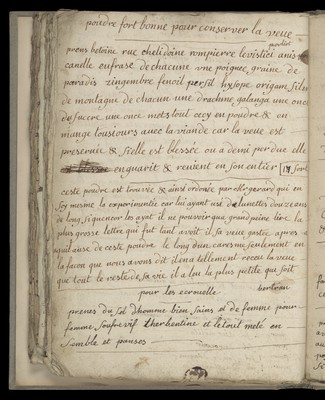 poudre fort bonne pour conserver la veue
poudre
prens betoine rue chelidoine rompierre levistici anis
canelle eufrase de chacune une poignee graine de
paradis zingembre fenoil persil hysope origam siler
de montagne de chacun une drachme galanga une once
de sucere une once mets tout cecy en poudre & en
mange tousiours avec la viande car la veue est
preservee & si elle est blessée ou a demi perdue elle
en guarit & revient en son entier
ceste poudre est trouvée & ainsi ordonée par Mr gerard qui en
soy mesme la experimentée car luy ayant use de lunettes douze ans
de long & quencor les ayat il ne pouvoir qua grand peine lire la
plus grosse lettre qui fut tant avoit il sa veue gastée apres
quil ause de ceste poudre le long dun caresme seulement en
la facon que nous avons dit il en a tellement receu la veue
que tout le reste de sa vie il a leu la plus petite que soit
bertrau
pour les ecrouelle
prenes du sel dhomme bien sains et de femme pour
femme soufre vif therbentine et le tout mele en
semble et panses